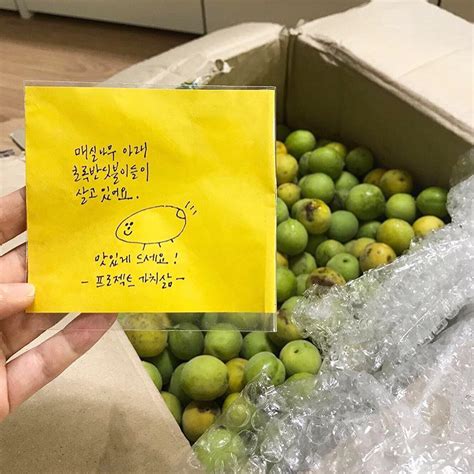 매실나무 아래
초록반딧불이들이
살고 있어요.
맛있게 드세요!
- 프로젝트 가치삶 -